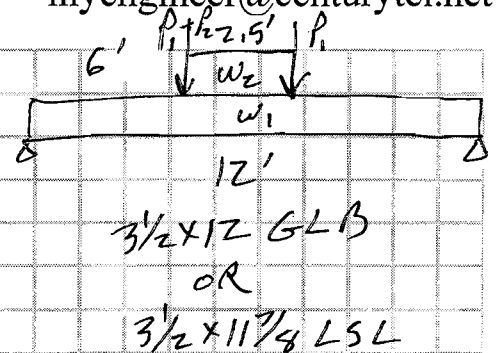 myengineer@centurytel.net
P₁+P₂ 2.5' P₁
6'
W₂
W₁
12'
3½x12 GLB
OR
3½x11⅞ LSL